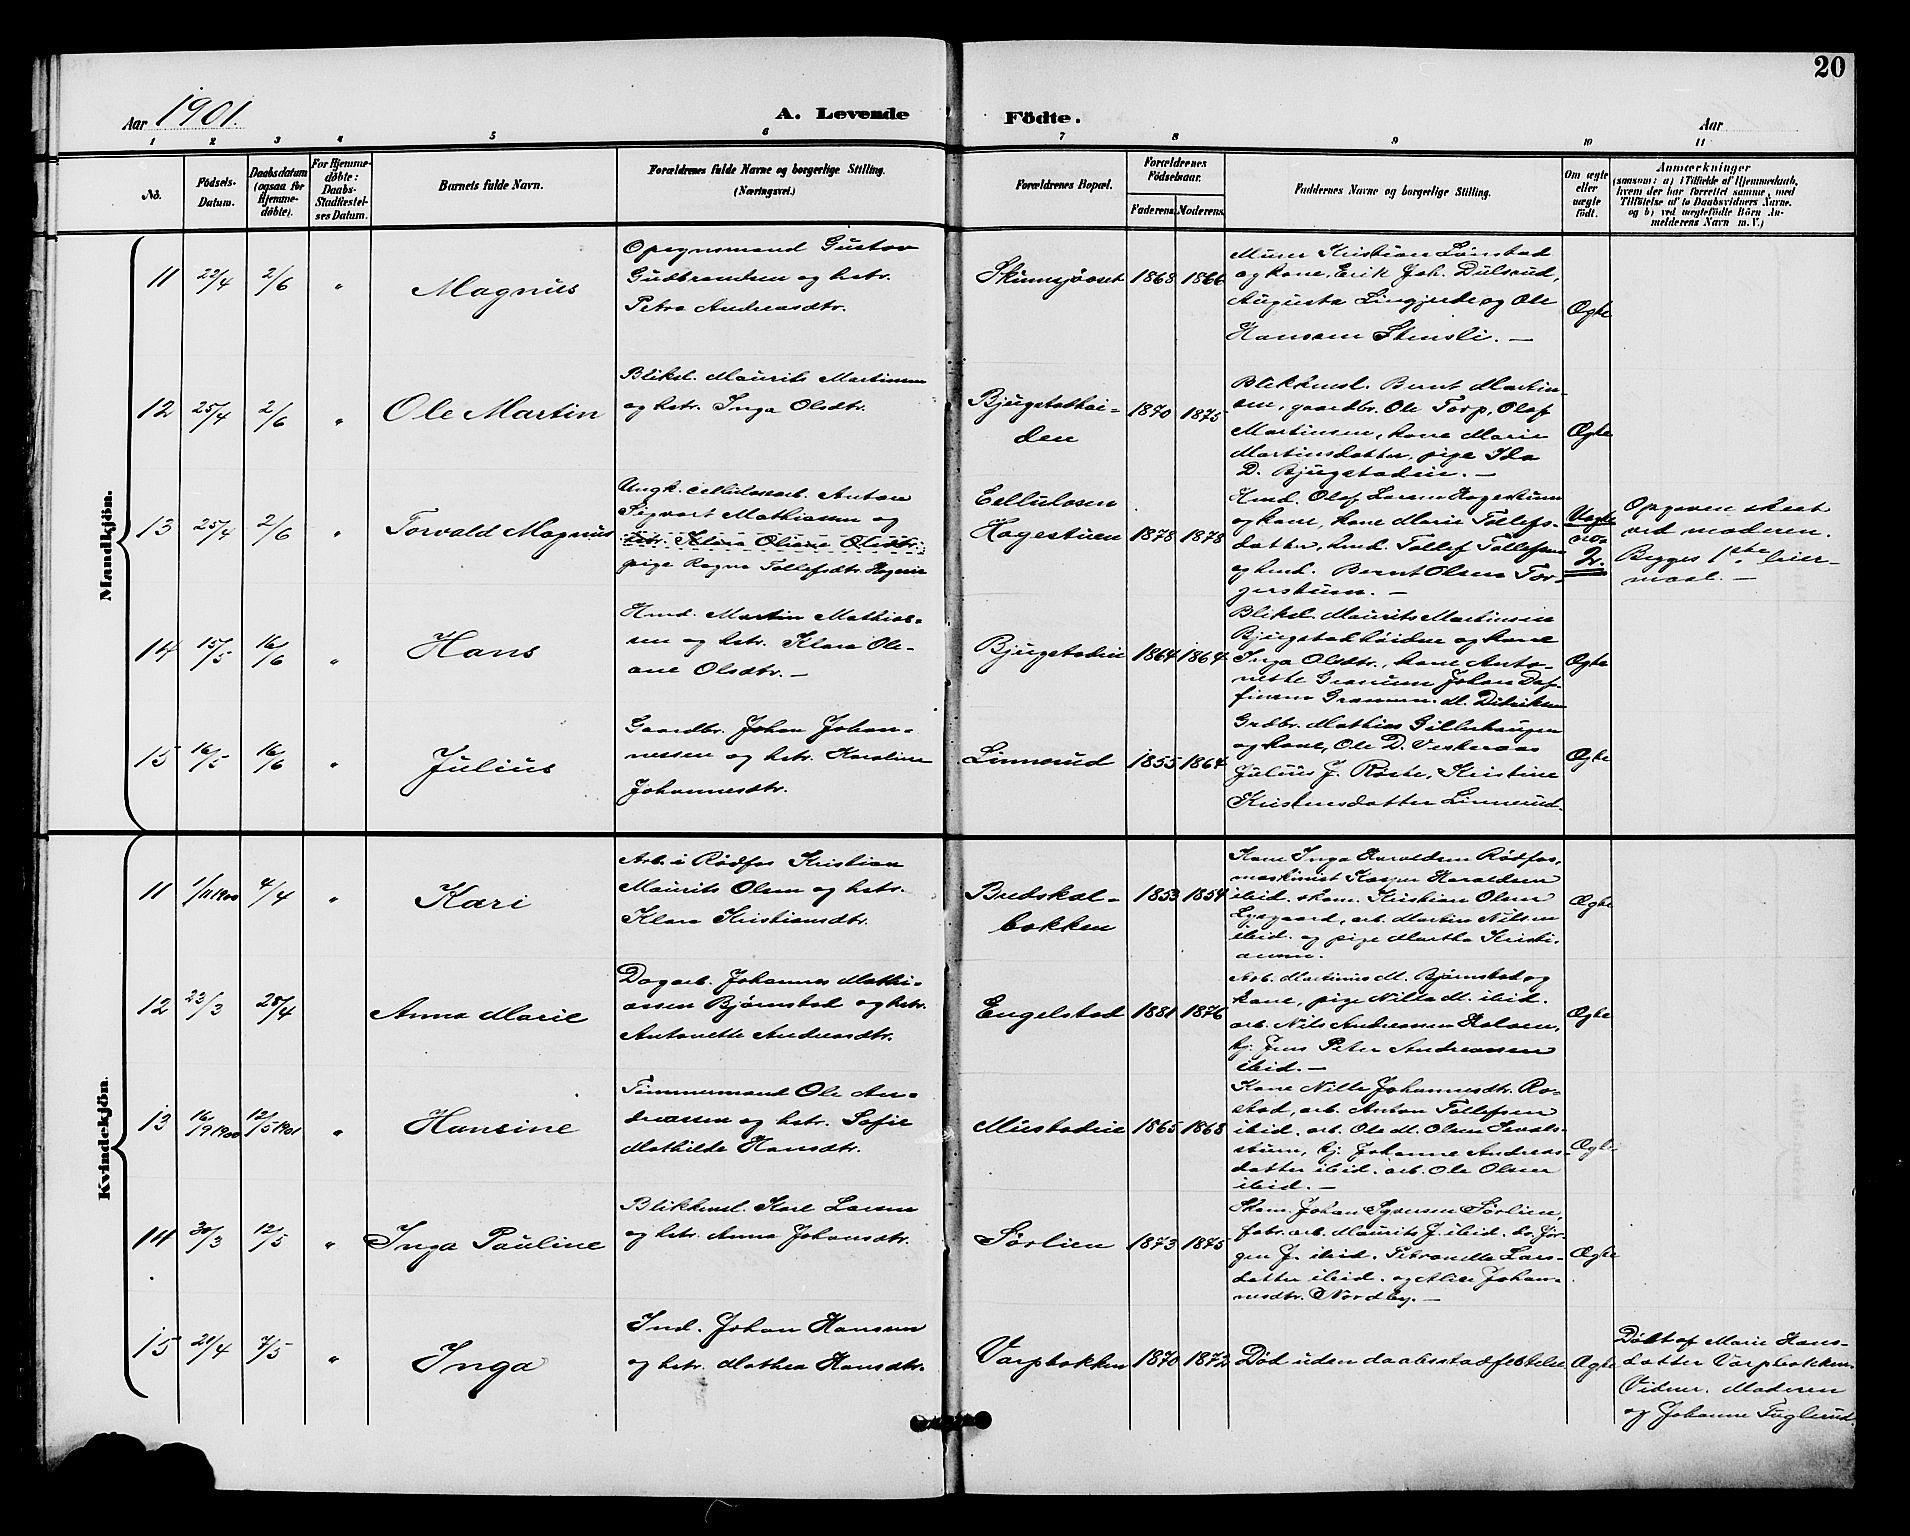 20
Aar 1901.
A. Levende
Födte.
Aar
1 2 3 4 5 6 7 8 9 10 11
Nō.
Födsels-
Datum.
Daabsdatum
(ogsaa for
Hjemme-
döbte).
For Hjemme-
döbte:
Daabs-
Stadfæstel-
ses Datum.
Barnets fulde Navn.
Forældrenes fulde Navne og borgerlige Stilling.
(Næringsvei.)
Forældrenes Bopæl.
Forældrenes
Födselsaar.
Faderens. Moderens.
Faddernes Navne og borgerlige Stilling.
Om ægte
eller
uægte
födt.
Anmærkninger
(saasom: a) i Tilfælde af Hjemmedaab,
hvem der har forrettet samme, med
Tilföielse af to Daabsvidners Navne.
og b) ved uægtefödte Börn An-
melderens Navn m. V.)
Mandkjön.
11 22/4 2/6 "
Magnus
Opsynsmand Gustav
Gudbrandsen og hstr.
Petra Andreasdtr.
Skumsjøoset 1868 1866
Murer Kristian Lønstad
og kone, Erik Joh. Dulsrud,
Augusta Lingjerde og Ole
Hansen Stensli. —
Ægte
12 25/4 2/6 "
Ole Martin
Bliksl. Maurits Martinsen
og hstr. Inga Olsdtr.
Bjugstadhei-
den
1870 1875
Blikkensl. Bernt Martin-
sen, gaardbr. Ole Torp, Olaf
Martinsen, kone Marie
Martinsdatter, pige Ida
D. Bjugstadeie. —
Ægte
13 25/4 2/6 "
Torvald Magnus
Ungk. cellulosearb. Anton
Sigvart Mathiassen og
hstr. Klara Oliane Olsdtr.
pige Ragna Tollefsdtr. Hageeie
Cellulosen
Hagestuen 1878 1878
Hmd. Olaf Larsen Hagestuen
og kone, kone Marie Tollefs-
datter, hmd. Tollef Tollefsen
og hmd. Bernt Olsen Tor-
gerstuen. —
Uægte
no.
2.
Opgaven skeet
ved moderen.
Begges 1ste leier-
maal. —
14 15/5 16/6 "
Hans
Hmd. Martin Mathias-
sen og hstr. Klara Ole-
ane Olsdtr. —
Bjugstadeie 1864 1864
Bliksl. Maurits Martinsen
Bjugstadheiden og kone
Inga Olsdtr., kone Anto-
nette Granum Johan Daf-
finsen Granum. M. Didriksen
Ægte
15 16/5 16/6 "
Julius
Gaardbr. Johan Johan-
nessen og hstr. Karoline
Johannesdtr.
Linnerud 1855 1864
Grdbr. Mathias Gillerhaugen
og kone, Ole D. Vesteraas
Julius J. Røste, Kristine
Kristensdatter Linnerud.
Ægte
Kvindekjön.
11 1/11 1900 4/4 "
Kari
Arb. i Rødfos Kristian
Maurits Olsen og hstr.
Klara Kristiansdtr.
Bredskal-
bakken
1853 1854
Kone Inga Haraldsen Rødfos,
maskinist Kasper Haraldsen
ibid. skom. Kristian Olsen
Lysgaard, arb. Martin Nilsen
ibid. og pige Martha Kristi-
ansen.
Ægte
12 23/3 28/4
Anna Marie
Dagarb. Johannes Mathi-
assen Bjørnstad og hstr.
Antonette Andreasdtr.
Engelstad 1881 1876
Arb. Martinius M. Bjørnstad og
kone, pige Nilla M. ibid.
arb. Nils Andreassen Kolsen,
tj. Jens Peter Andreassen
ibid. —
Ægte
13 16/9 1900 12/5 1901 "
Hansine
Tømmermand Ole An-
dreassen og hstr. Sofie
Mathilde Hansdtr.
Mustadeie 1865 1868
Kone Nille Johannesdtr. Ro-
stad, arb. Anton Tollefsen
ibid. arb. Ole M. Olsen
stuen, tj. Johanne Andreas-
datter ibid. arb. Ole Olsen
ibid. —
Ægte
14 30/3 12/5 "
Inga Pauline
Blikkensl. Karl Larsen
og hstr. Anna Johansdtr.
Sørlien 1873 1875
Skom. Johan Syversen Sørlien,
fabr. arb. Maurits J. ibid. do. Jør-
gen J. ibid. Petronelle Lars-
datter ibid. og Alise Johan-
nesdtr. Nordby. —
Ægte
15 21/4 7/5 "
Inga
Ind. Johan Hansen
og hstr. Mathea Hansdtr.
Varpbakken 1870 1872
Død uden daabsstadfæstelse
Ægte
Døbt af Marie Hans-
datter Varpbakken
Vidner. Moderen
og Johanne Fuglerud.